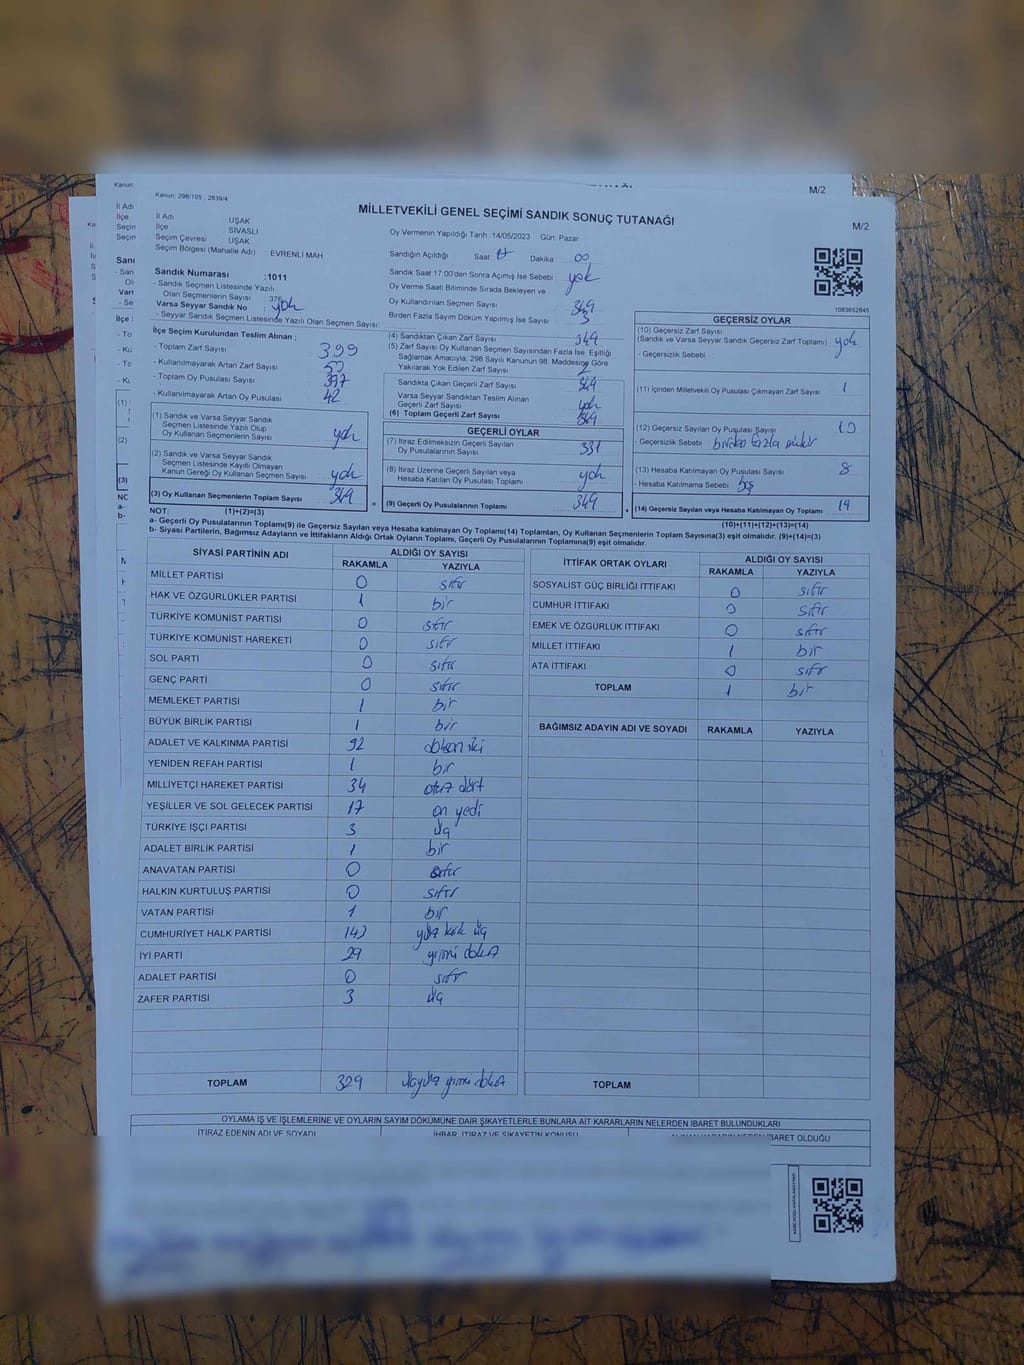 M/2
Kanun: 298/105 ; 2839/4
MİLLETVEKİLİ GENEL SEÇİMİ SANDIK SONUÇ TUTANAĞI
M/2
İl Adı : UŞAK
İlçe : SİVASLI
Seçim Çevresi : UŞAK
Seçim Bölgesi (Mahalle Adı) : EVRENLİ MAH
Oy Vermenin Yapıldığı Tarih :14/05/2023 Gün: Pazar
Sandığın Açıldığı Saat: Dakika: 00
Sandık Saat 17:00'den Sonra Açılmış İse Sebebi: yok
Oy Verme Saati Bitiminde Sırada Bekleyen ve
Oy Kullandırılan Seçmen Sayısı
Birden Fazla Sayım Döküm Yapılmış İse Sayısı
Sandık Numarası :1011
- Sandık Seçmen Listesinde Yazılı
Olan Seçmenlerin Sayısı : 376
Varsa Seyyar Sandık No : yok
- Seyyar Sandık Seçmen Listesinde Yazılı Olan Seçmen Sayısı:
1083652845
İlçe Seçim Kurulundan Teslim Alınan ;
- Toplam Zarf Sayısı 399
- Kullanılmayarak Artan Zarf Sayısı
- Toplam Oy Pusulası Sayısı
- Kullanılmayarak Artan Oy Pusulası 42
(1) Sandık ve Varsa Seyyar Sandık
Seçmen Listesinde Yazılı Olup
Oy Kullanan Seçmenlerin Sayısı yok
(2) Sandık ve Varsa Seyyar Sandık
Seçmen Listesinde Kayıtlı Olmayan
Kanun Gereği Oy Kullanan Seçmen Sayısı yok
(3) Oy Kullanan Seçmenlerin Toplam Sayısı 349
(4) Sandıktan Çıkan Zarf Sayısı 349
(5) Zarf Sayısı Oy Kullanan Seçmen Sayısından Fazla İse, Eşitliği
Sağlamak Amacıyla; 298 Sayılı Kanunun 98. Maddesine Göre
Yakılarak Yok Edilen Zarf Sayısı
Sandıkta Çıkan Geçerli Zarf Sayısı 349
Varsa Seyyar Sandıktan Teslim Alınan
Geçerli Zarf Sayısı yok
(6) Toplam Geçerli Zarf Sayısı 349
GEÇERLİ OYLAR
(7) İtiraz Edilmeksizin Geçerli Sayılan
Oy Pusulalarının Sayısı 331
(8) İtiraz Üzerine Geçerli Sayılan veya
Hesaba Katılan Oy Pusulası Toplamı yok
(9) Geçerli Oy Pusulalarının Toplamı 349
GEÇERSİZ OYLAR
(10) Geçersiz Zarf Sayısı
(Sandık ve Varsa Seyyar Sandık Geçersiz Zarf Toplamı) yok
- Geçersizlik Sebebi :
(11) İçinden Milletvekili Oy Pusulası Çıkmayan Zarf Sayısı 1
(12) Geçersiz Sayılan Oy Pusulası Sayısı 10
- Geçersizlik Sebebi : birden fazla mühür
(13) Hesaba Katılmayan Oy Pusulası Sayısı 8
- Hesaba Katılmama Sebebi : boş
(14) Geçersiz Sayılan veya Hesaba Katılmayan Oy Toplamı 19
NOT: (1)+(2)=(3)
(10)+(11)+(12)+(13)=(14)
a- Geçerli Oy Pusulalarının Toplamı(9) ile Geçersiz Sayılan veya Hesaba katılmayan Oy Toplamı(14) Toplamları, Oy Kullanan Seçmenlerin Toplam Sayısına(3) eşit olmalıdır. (9)+(14)=(3)
b- Siyasi Partilerin, Bağımsız Adayların ve İttifakların Aldığı Ortak Oyların Toplamı, Geçerli Oy Pusulalarının Toplamına(9) eşit olmalıdır.
SİYASİ PARTİNİN ADI ALDIĞI OY SAYISI
RAKAMLA YAZIYLA
MİLLET PARTİSİ 0 sıfır
HAK VE ÖZGÜRLÜKLER PARTİSİ 1 bir
TÜRKİYE KOMÜNİST PARTİSİ 0 sıfır
TÜRKİYE KOMÜNİST HAREKETİ 0 sıfır
SOL PARTİ 0 sıfır
GENÇ PARTİ 0 sıfır
MEMLEKET PARTİSİ 1 bir
BÜYÜK BİRLİK PARTİSİ 1 bir
ADALET VE KALKINMA PARTİSİ 92 doksan iki
YENİDEN REFAH PARTİSİ 1 bir
MİLLİYETÇİ HAREKET PARTİSİ 34 otuz dört
YEŞİLLER VE SOL GELECEK PARTİSİ 17 on yedi
TÜRKİYE İŞÇİ PARTİSİ 3 üç
ADALET BİRLİK PARTİSİ 1 bir
ANAVATAN PARTİSİ 0 sıfır
HALKIN KURTULUŞ PARTİSİ 0 sıfır
VATAN PARTİSİ 1 bir
CUMHURİYET HALK PARTİSİ 143 yüz kırk üç
İYİ PARTİ 29 yirmi dokuz
ADALET PARTİSİ 0 sıfır
ZAFER PARTİSİ 3 üç
TOPLAM 329 üçyüz yirmi dokuz
İTTİFAK ORTAK OYLARI ALDIĞI OY SAYISI
RAKAMLA YAZIYLA
SOSYALİST GÜÇ BİRLİĞİ İTTİFAKI 0 sıfır
CUMHUR İTTİFAKI 0 sıfır
EMEK VE ÖZGÜRLÜK İTTİFAKI 0 sıfır
MİLLET İTTİFAKI 1 bir
ATA İTTİFAKI 0 sıfır
TOPLAM 1 bir
BAĞIMSIZ ADAYIN ADI VE SOYADI RAKAMLA YAZIYLA
TOPLAM
OYLAMA İŞ VE İŞLEMLERİNE VE OYLARIN SAYIM DÖKÜMÜNE DAİR ŞİKAYETLERLE BUNLARA AİT KARARLARIN NELERDEN İBARET BULUNDUKLARI
İTİRAZ EDENİN ADI VE SOYADI İHBAR, İTİRAZ VE ŞİKAYETİN KONUSU İBARET OLDUĞU